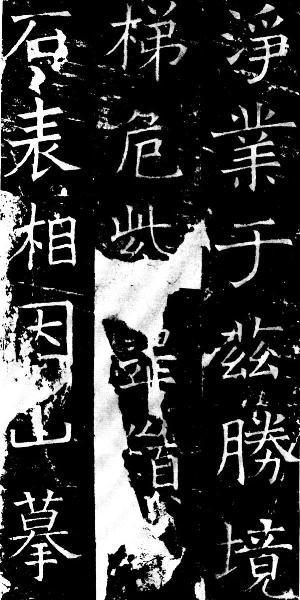 淨業于茲勝境
梯危
石表相因山摹